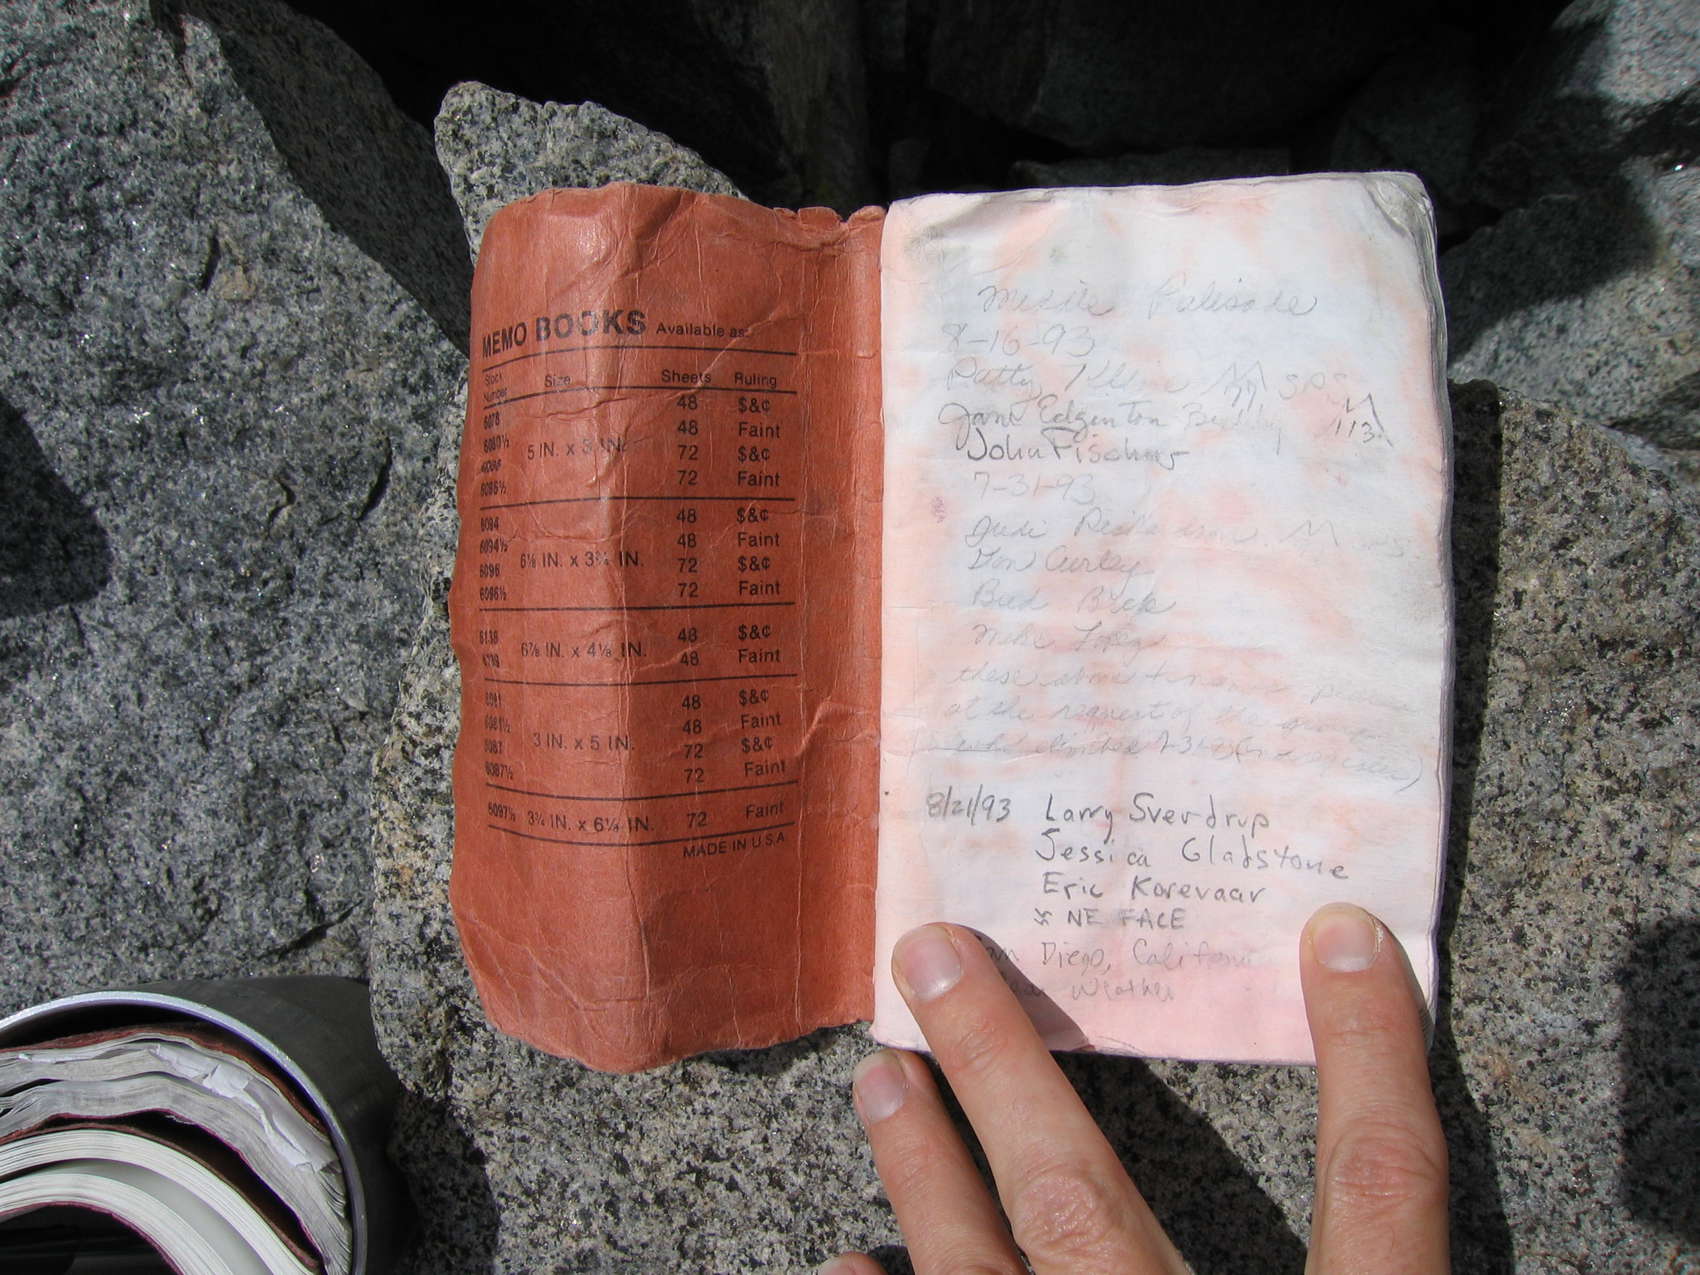 MEMO BOOKS Available as:
Stock Number Size Sheets Ruling
6078 48 $&¢
6080½ 48 Faint
5 IN. x 3 IN.
72 $&¢
6086½ 72 Faint
6094 48 $&¢
6094½ 48 Faint
6⅛ IN. x 3¾ IN.
6096 72 $&¢
6096½ 72 Faint
6136 48 $&¢
6⅞ IN. x 4⅛ IN.
48 Faint
6081 48 $&¢
6081½ 48 Faint
3 IN. x 5 IN.
6087 72 $&¢
6087½ 72 Faint
6097½ 3¾ IN. x 6¼ IN. 72 Faint
MADE IN U.S.A
Middle Palisade
8-16-93
Patty Kline SPS
Jane Edginton Berkeley
John Fischer
7-31-93
Judi Richardson
Don Curley
Bud Bock
Mike Lopez
these above names
at the request of the
climbed 7-31-93 register)
8/21/93 Larry Sverdrup
Jessica Gladstone
Eric Korevaar
NE FACE
Diego, California
Weather